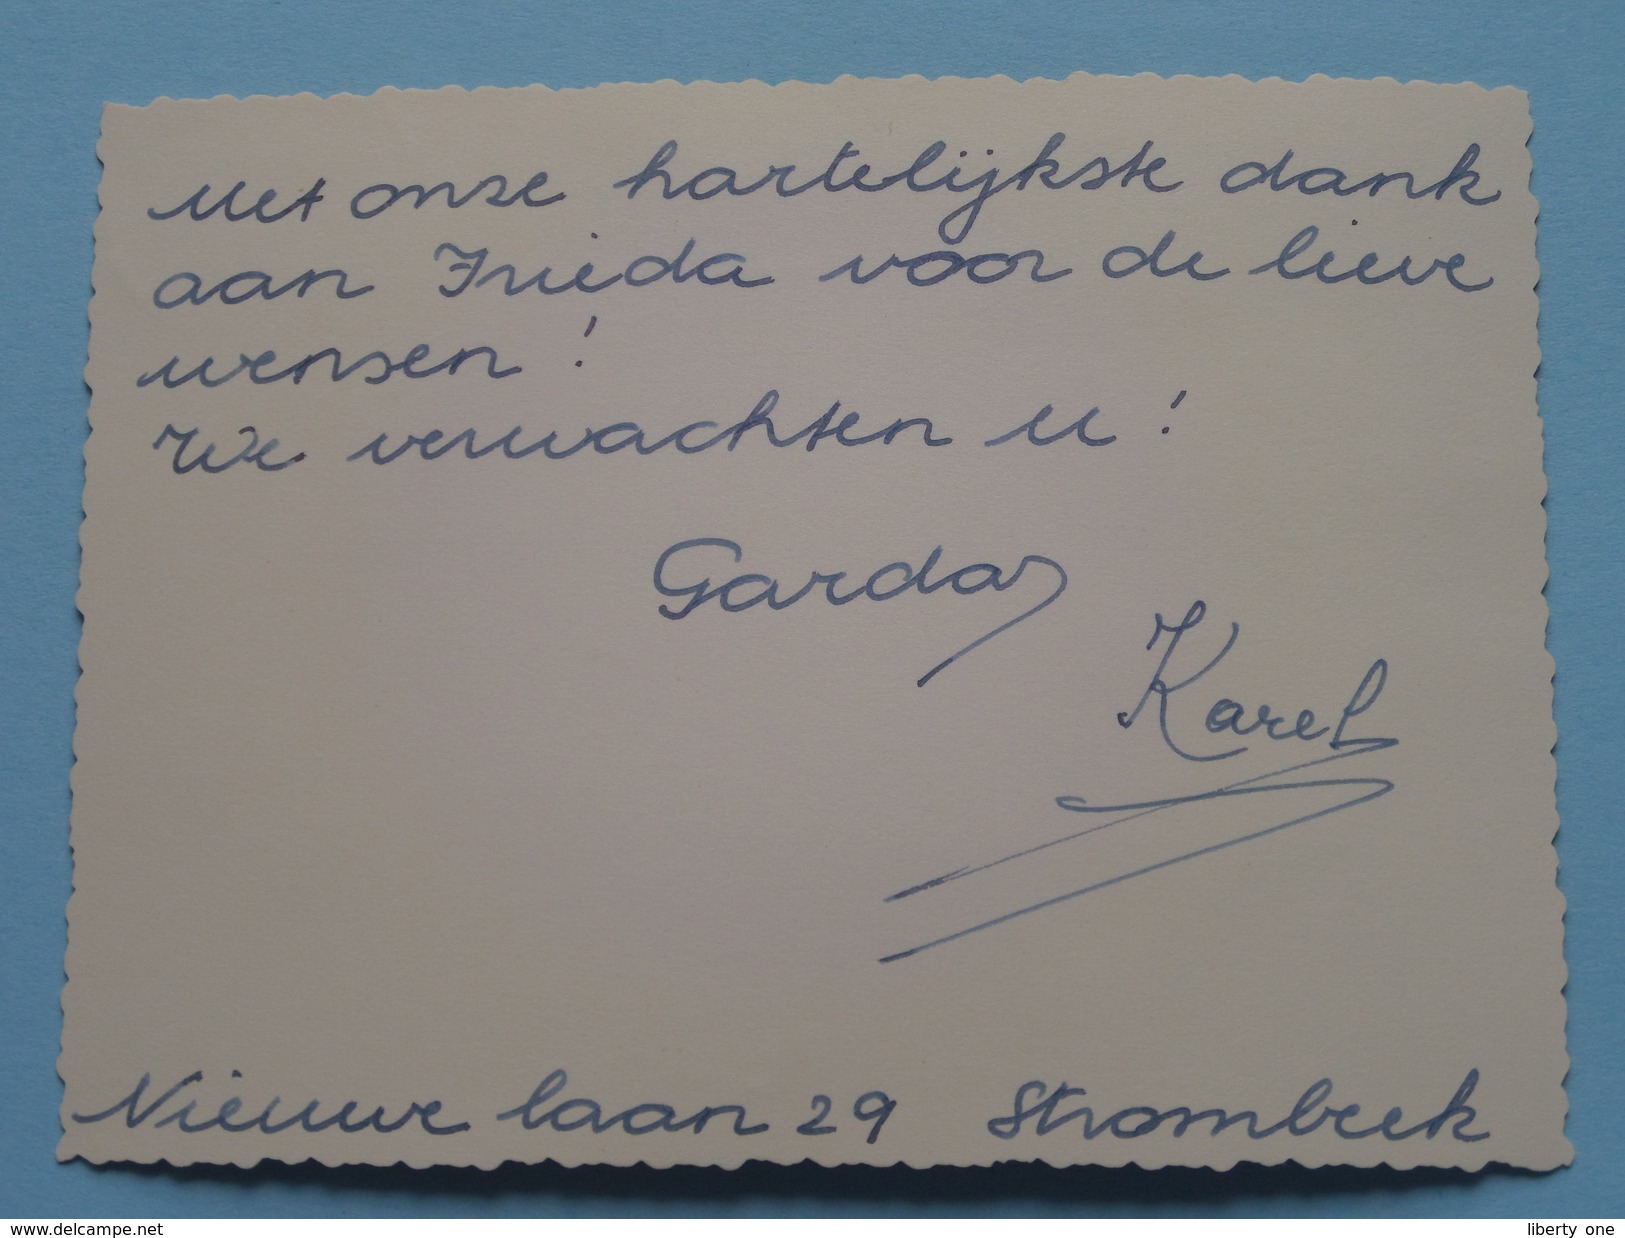 Met onze hartelijkste dank
aan Frieda voor de lieve
wensen !
We verwachten u !
Garda
Karel
Nieuwe laan 29 Strombeek
www.delcampe.net
liberty_one